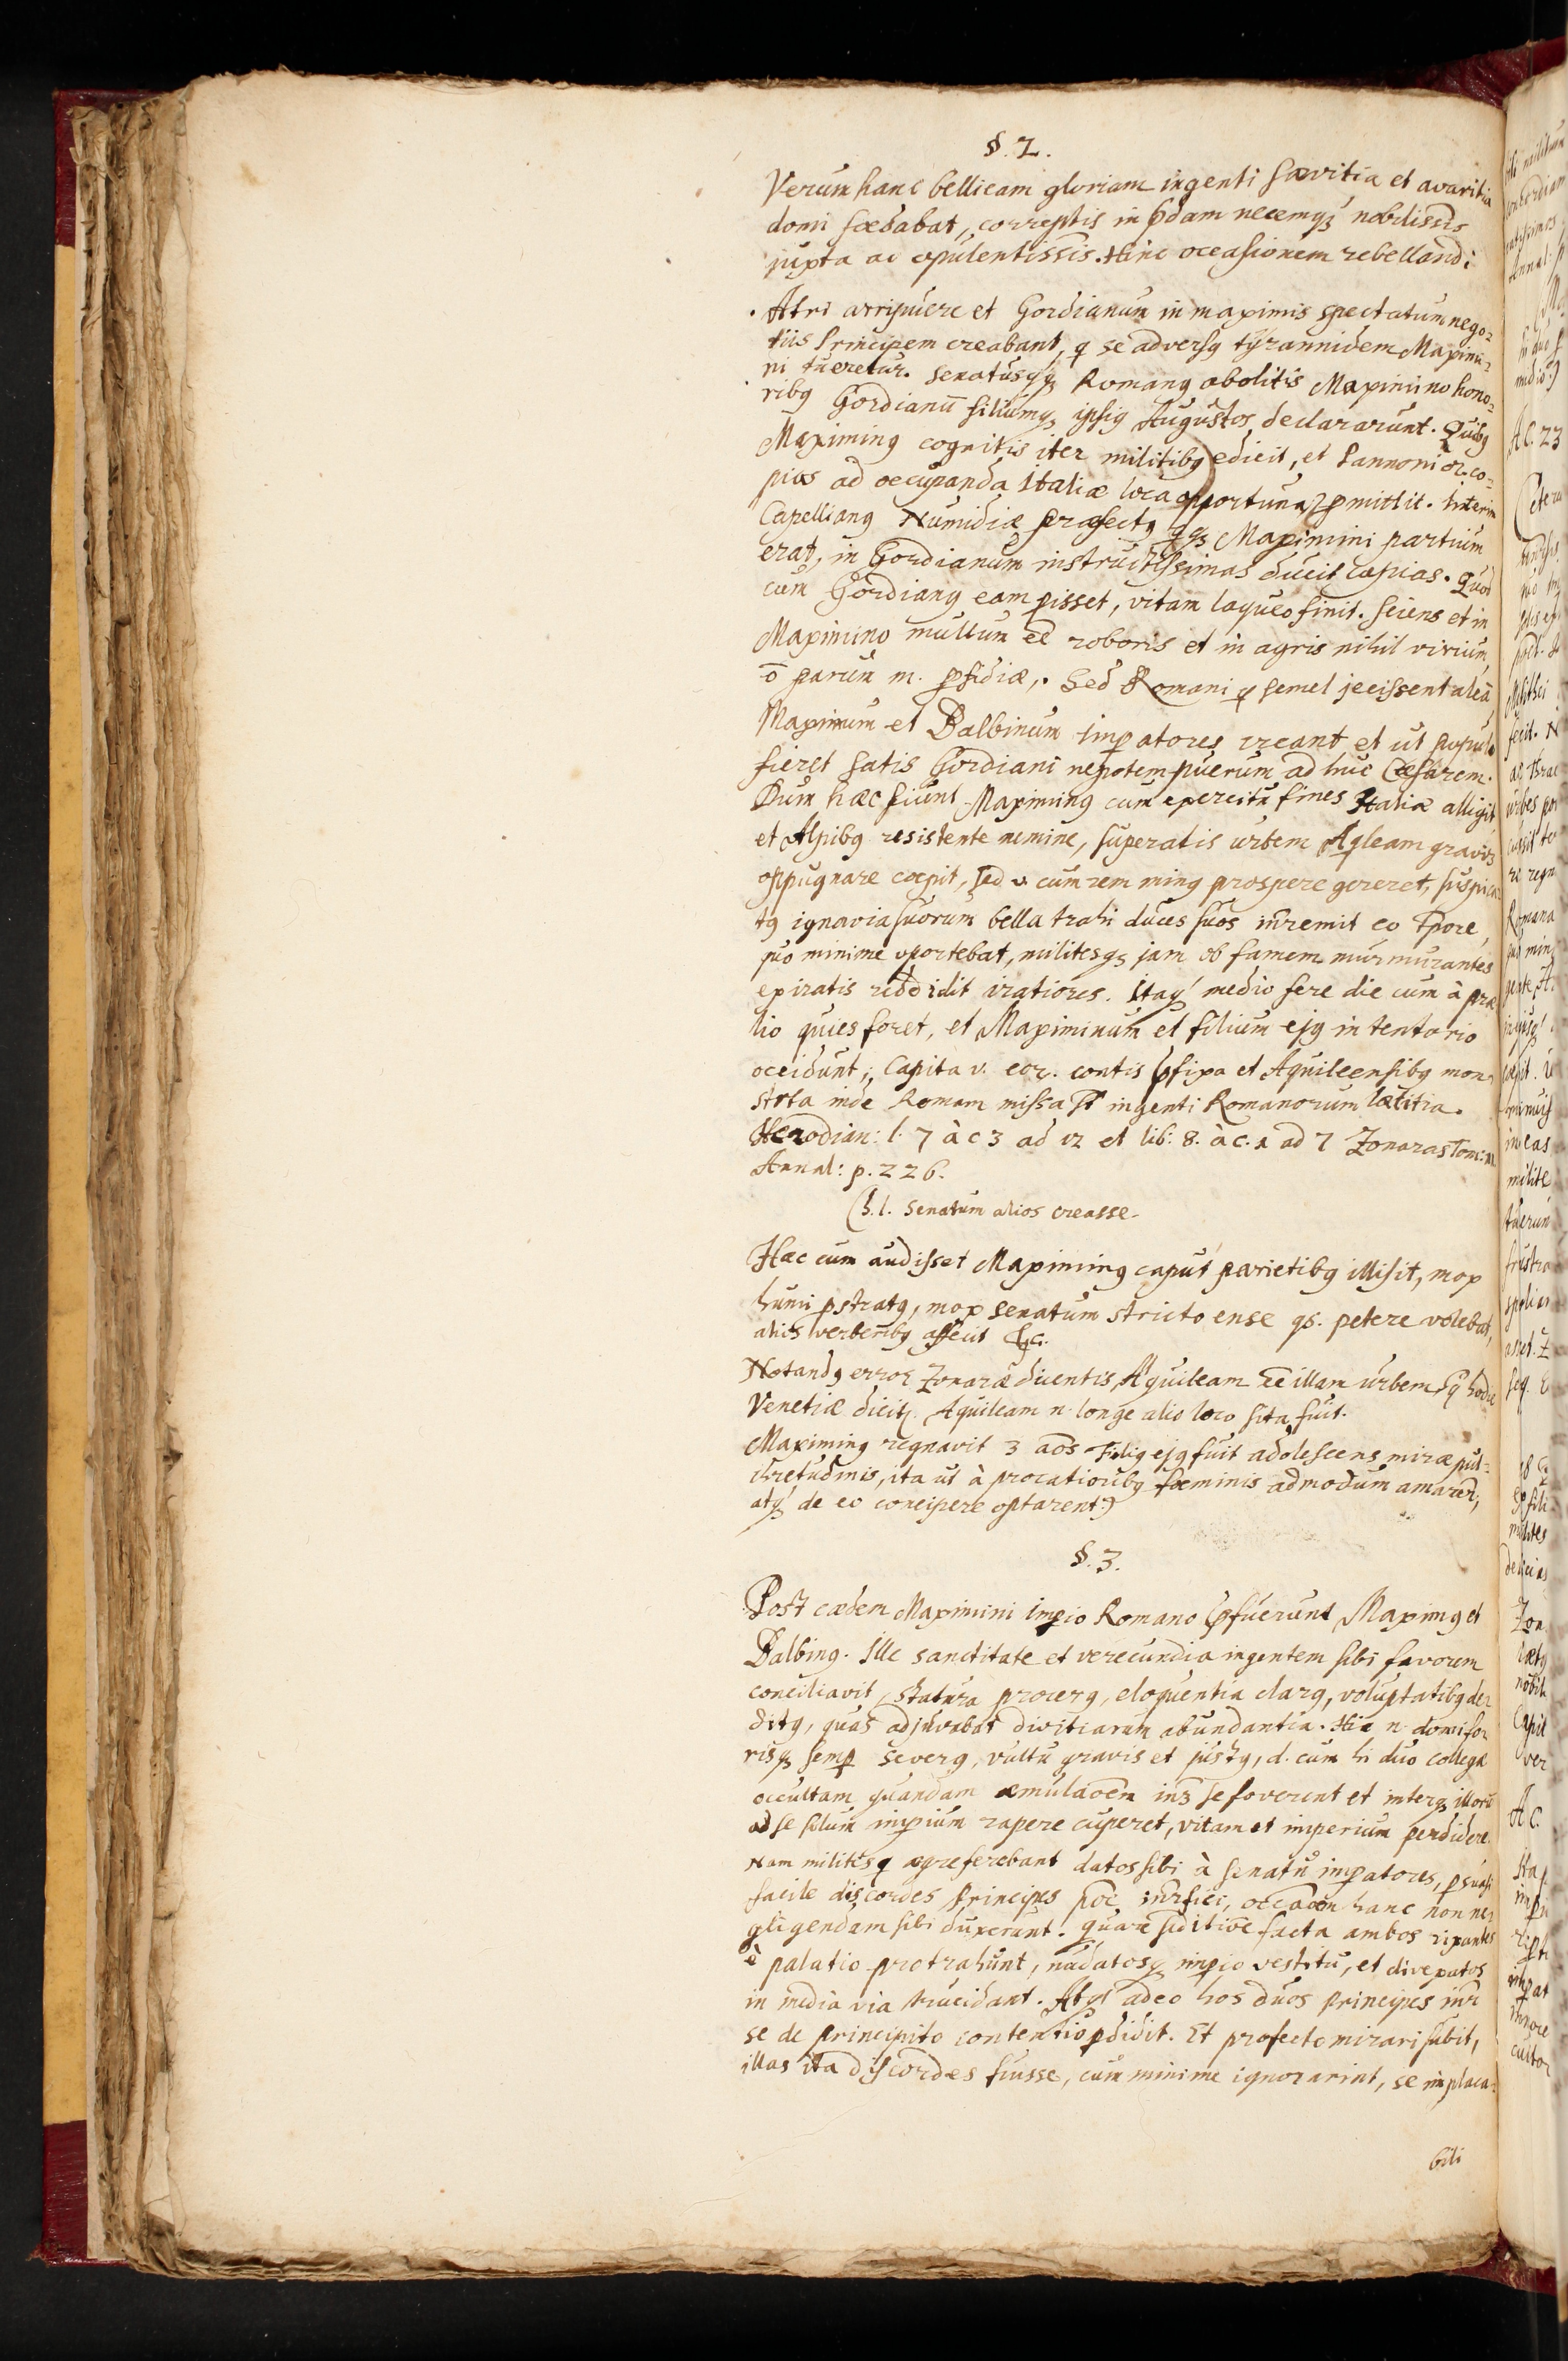 §. 2.
Verum hanc bellicam gloriam ingenti sævitia et avaritia
domi fœdabat, correptis in p̄dam necemqꝫ nobilissis
juxta ac opulentissis. Hinc occasionem rebellandi
Afri arripuere et Gordianum in maximis spectatum nego=
tiis Principem creabant, q se adversꝰ tyrannidem Maximi=
ni tueretur. Senatusqꝫ Romanꝰ abolitis Maximino hono=
ribꝰ Gordianū filiumqꝫ ipsiꝰ Augustos declararunt. Quibꝰ
Maximinꝰ cognitis iter militibꝰ edicit, et Pannonior. co=
pias ad occupanda Italiæ loca opportuna p̄mittit. Interim
Capellianꝰ Numidiæ præfectꝰ qqꝫ Maximini partium
erat, in Gordianum instructissimas ducit copias. Quod
cum Gordianꝰ eam pisset, vitam laqueo finit. sciens et in
Maximino multum ēē roboris et in agris nihil virium,
ō parum m. pfidiæ. Sed Romani q semel jecissent aleā
Maximum et Balbinum impatores creant et ut populo
fieret satis Gordiani nepotem puerum adhuc Cæsarem.
Dum hæc fiunt Maximinꝰ cum exercitu fines Italiæ alligit
et Alpibꝰ resistente nemine, superatis urbem Aqleam gravir
oppugnare cœpit, sed v cum rem minꝰ prospere gereret, suspica=
tꝰ ignavia suorum bella trahi duces suos inremit eo tpore,
quo minime oportebat, militesqꝫ jam ob famem murmurantes
ex iratis reddidit iratiores. Itaqꝫ medio fere die cum à præ
lio quies foret, et Maximinum et filium ejꝰ in tentorio
occidunt, capita v. eor. contis p̄fixa et Aquileensibꝰ mon=
strata inde Romam missa st ingenti Romanorum lætitia.
Herodian: l. 7 à c 3 ad 12 et lib: 8. à c. 1 ad 7 Zonaras Tom: 11.
Annal: p. 226.
(h. l. Senatum alios creasse.
Hæc cum audisset Maximinꝰ caput parietibꝰ illisit, mox
humi pstratꝰ, mox senatum stricto ense qs. petere volebat,
alios verberibꝰ affecit &c.
Notandꝰ error Zonaræ dicentis, Aquileam ēē illam urbem, q̄ hodie
Venetiæ dicitr. Aquileam n. longe alio loco sita fuit.
Maximinꝰ regnavit 3 aōs Filiꝰ ejꝰ fuit adolescens miræ pul=
chretudinis, ita ut à procatioribꝰ fœminis admodum amaretr,
atqꝫ de eo concipere optarent.)
§. 3.
Post cædem Maximini impio Romano p̄fuerunt Maximꝰ et
Balbinꝰ. Ille sanctitate et verecundia ingentem sibi favorem
conciliavit, statura procerꝰ, eloquentia clarꝰ, voluptatibꝰ de=
ditꝰ, quas adjuvabat divitiarum abundantia. Hic n. domi fo=
risqꝫ semp severꝰ, vultu gravis et justꝰ, d. cum hi duo collegæ
occultam quandam æmulaōem inꝫ se foverent et interqꝫ illorū
ad se solum impium rapere cuperet, vitam et imperium perdidere.
Nam militesq ægre ferebant datos sibi à senatu impatores, psuasi
facile discordes Principes pōe inrfici, occaōem hanc non ne=
gligendam sibi duxerunt. Quare seditiōe facta ambos rixantes
è palatio protrahunt, nudatosqꝫ impio vestitu, et divexatos
in media via trucidant. Atqꝫ adeo hos duos Principes inr
se de principito contentio pdidit. Et profecto mirari subit,
illas ita discordes fuisse, cum minime ignorarint, se implaca=
bili